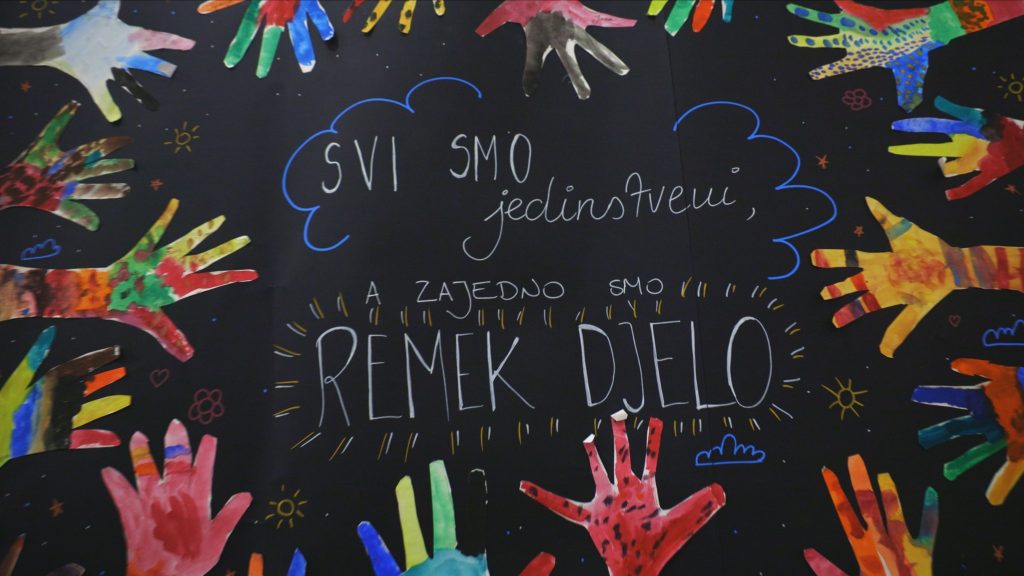 SVI SMO
jedinstveni,
A ZAJEDNO SMO
REMEK DJELO